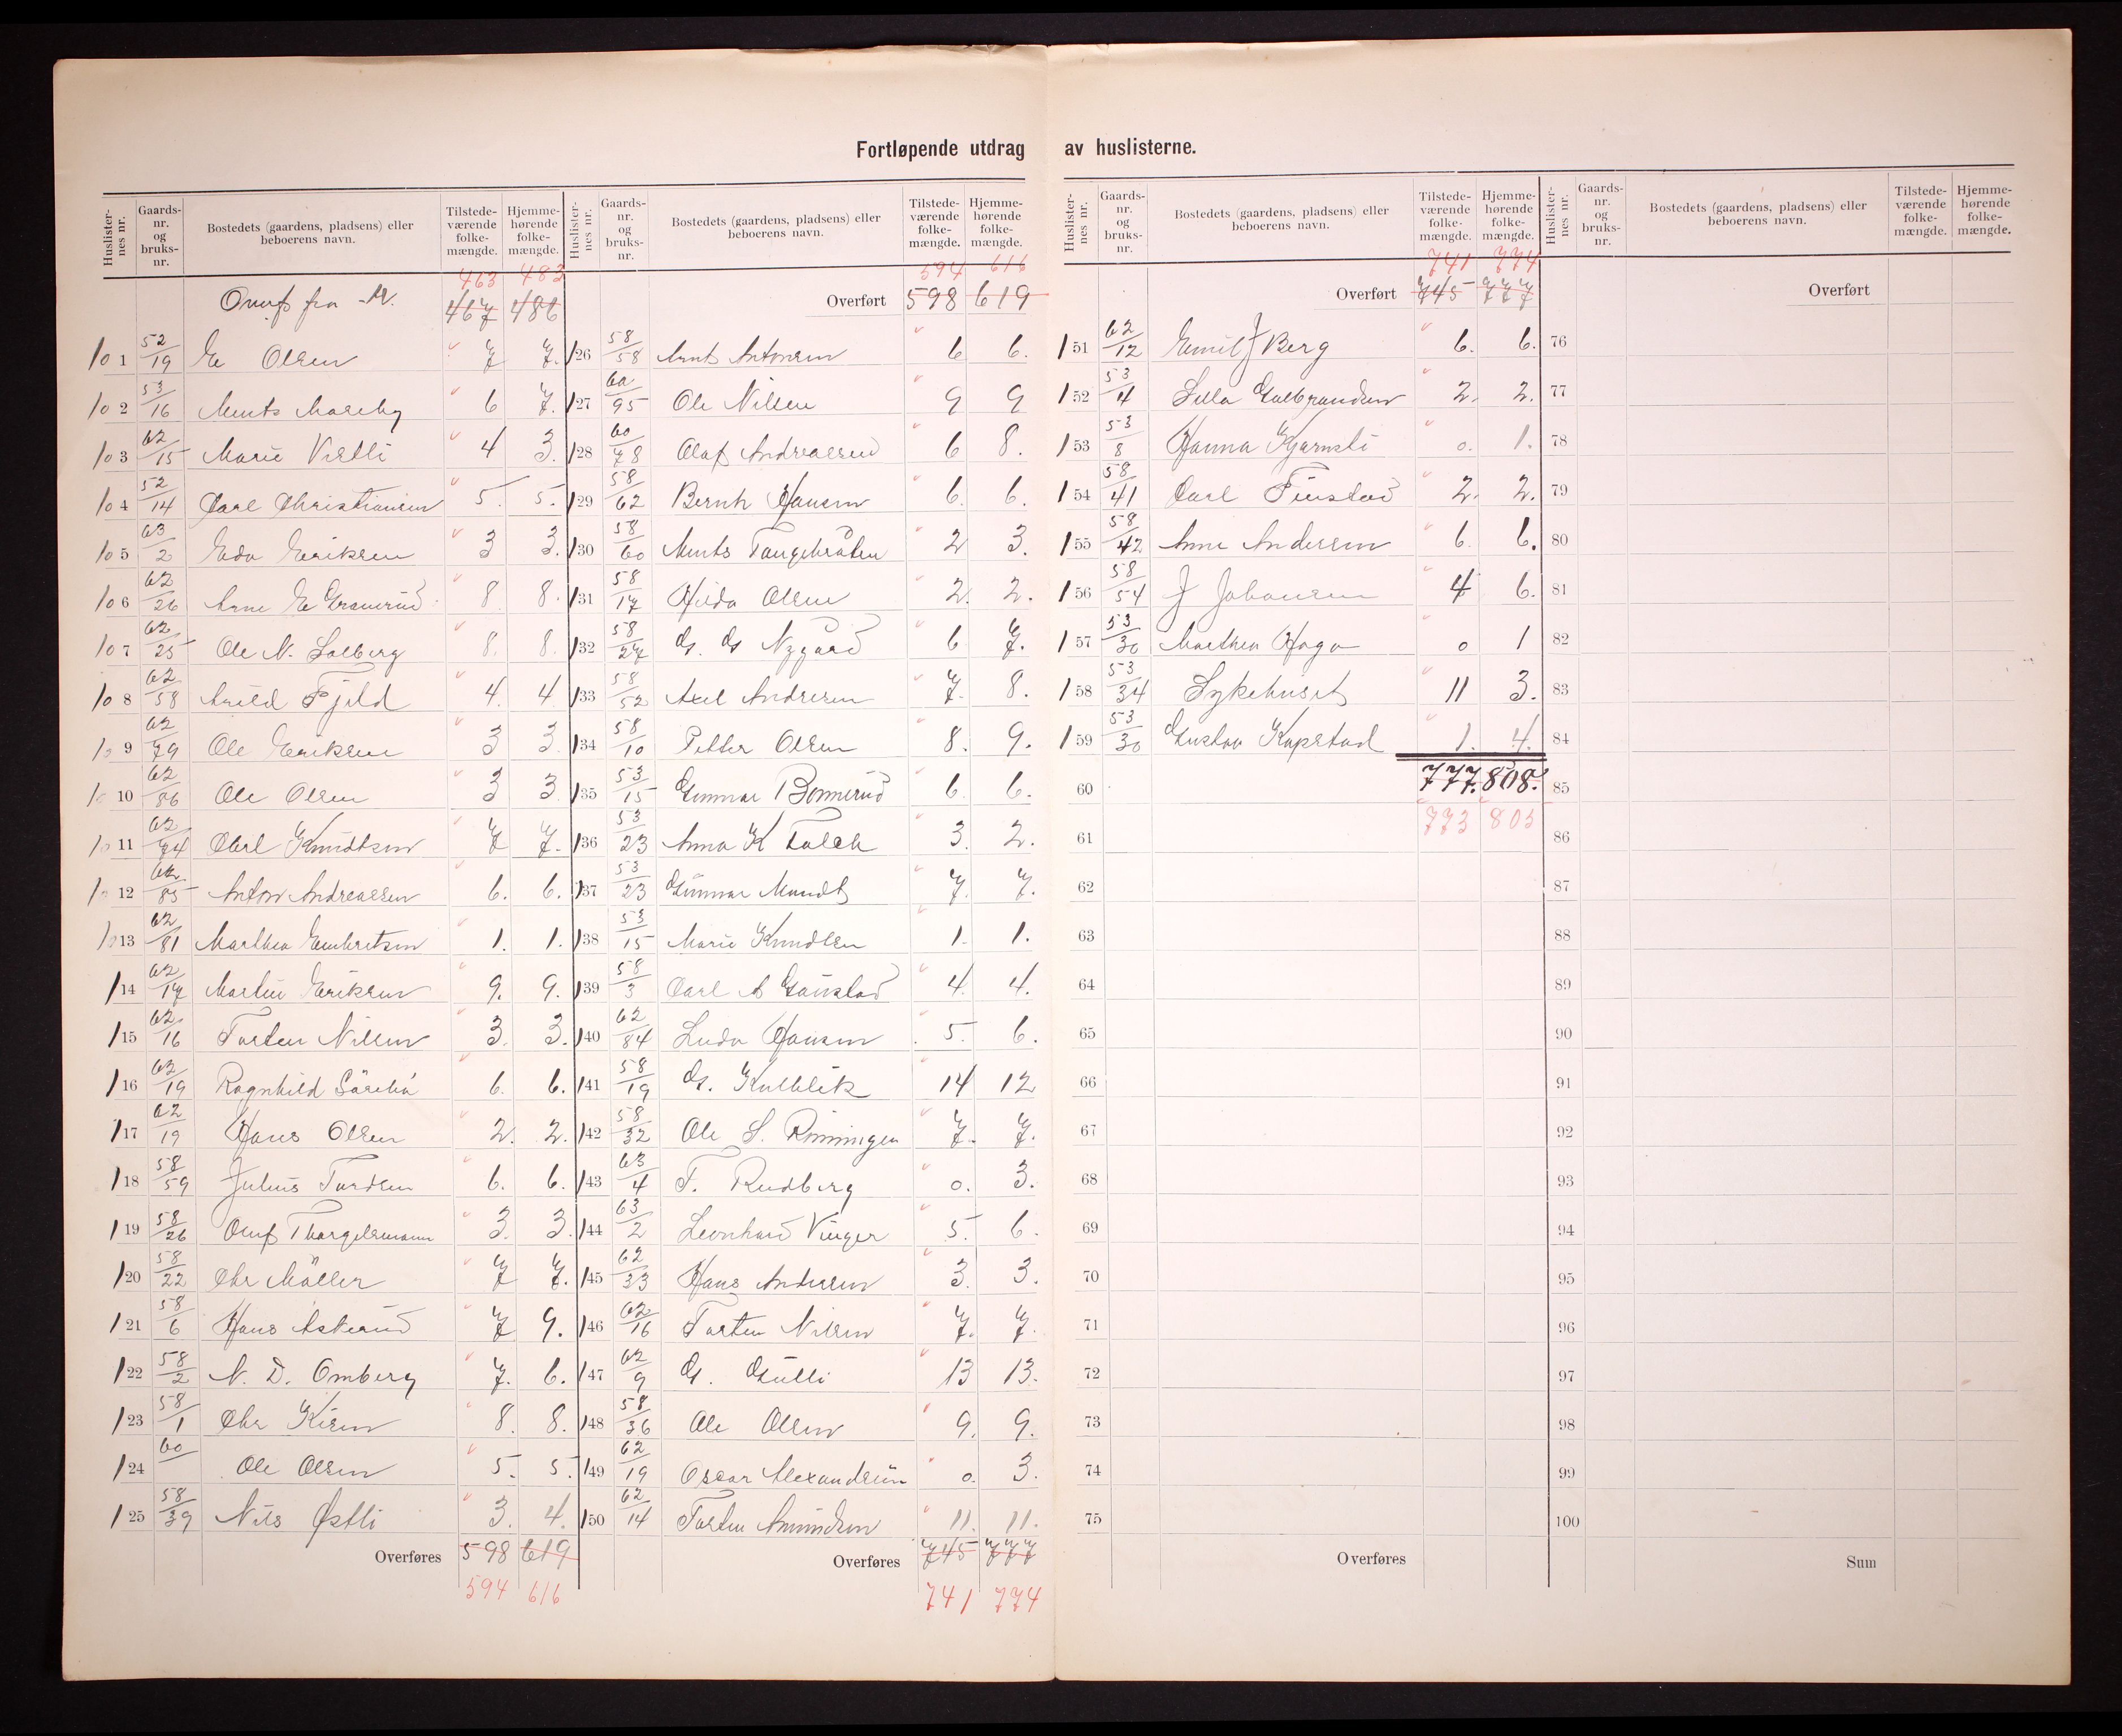 Fortløpende utdrag av huslisterne.
Huslister-nes nr. | Gaards-nr. og bruks-nr. | Bostedets (gaardens, pladsens) eller beboerens navn. | Tilstede-værende folke-mængde. | Hjemme-hørende folke-mængde.
463 483
467 486
101 52/19 E Olsen 7 7.
102 53/16 6 7.
103 62/15 Marie 4 3.
104 52/14 Carl Christiansen 5. 5.
105 63/2 Eda Eriksen 3 3.
106 62/26 Arne E Granerud 8 8.
107 62/25 Ole N. Solberg 8. 8.
108 62/58 Arild Fjeld 4. 4
109 62/79 Ole Eriksen 3 3.
110 62/86 Ole Olsen 3 3.
111 62/74 Carl Knudtsen 7 7.
112 62/85 Anton Andreassen 6. 6.
113 62/81 Marthea Embretsen 1. 1.
114 62/17 Martin Eriksen 9. 9.
115 62/16 Torsten Nilsen 3. 3.
116 62/19 Ragnhild 6. 6.
117 62/19 Hans Olsen 2. 2.
118 58/59 Julius Tordsen 6. 6.
119 58/26 Oluf 3. 3.
120 58/22 Chr Møller 7 7.
121 58/6 Hans Asterud 7 9.
122 58/2 N. D. Omberg 7. 6.
123 58/1 Chr 8. 8.
124 60/ Ole Olsen 5. 5.
125 58/39 Nils Østli 3. 4.
Overføres 598 619
594 616
Huslister-nes nr. | Gaards-nr. og bruks-nr. | Bostedets (gaardens, pladsens) eller beboerens navn. | Tilstede-værende folke-mængde. | Hjemme-hørende folke-mængde.
594 616
Overført 598 619
126 58/58 Arnt Antonsen 6 6.
127 60/95 Ole Nilsen 9 9
128 60/78 Olaf Andreassen 6 8.
129 58/62 Bernh Hansen 6. 6.
130 58/60 Tangebråten 2 3.
131 58/17 Hilda Olsen 2. 2.
132 58/27 G. G Nygård 6 7.
133 58/52 Axel Andresen 7. 8.
134 58/10 Petter Olsen 8. 9.
135 53/15 Gunnar Bonnerud 6. 6.
136 53/23 Anna K Falch 3. 2.
137 53/23 Gunnar Mundt 7. 7.
138 53/15 Marie Knudsen 1. 1.
139 58/3 Carl A Gaustad 4. 4.
140 62/84 Luda Hansen 5. 6.
141 58/19 G. Kulblik 14 12
142 58/32 Ole S. Rønningen 7. 7.
143 63/4 T. Rudberg 0. 3.
144 63/2 Leonhard Vinger 5. 6.
145 62/33 Hans Andersen 3. 3.
146 62/16 Torsten Nilsen 7. 7.
147 62/9 G. Gulli 13 13.
148 58/36 Ole Olsen 9. 9.
149 62/19 Oscar Alexandersen 0. 3.
150 62/14 Torsten Amundsen 11. 11.
Overføres 745 777
741 774
Huslister-nes nr. | Gaards-nr. og bruks-nr. | Bostedets (gaardens, pladsens) eller beboerens navn. | Tilstede-værende folke-mængde. | Hjemme-hørende folke-mængde.
741 774
Overført 745 777
151 62/12 Emil J Berg 6. 6.
152 53/4 Gulbrandsen 2. 2.
153 53/8 Hanna Kjærnsli 0. 1.
154 58/41 Carl Finstad 2. 2.
155 58/42 Anne Andersen 6. 6.
156 58/54 J Johansen 4 6.
157 53/30 Marthea Haga 0 1
158 53/34 Sykehuset 11 3.
159 53/30 Gustav Kopstad 1. 4.
60 777. 808.
773 805
61
62
63
64
65
66
67
68
69
70
71
72
73
74
75
Overføres
Huslister-nes nr. | Gaards-nr. og bruks-nr. | Bostedets (gaardens, pladsens) eller beboerens navn. | Tilstede-værende folke-mængde. | Hjemme-hørende folke-mængde.
Overført
76
77
78
79
80
81
82
83
84
85
86
87
88
89
90
91
92
93
94
95
96
97
98
99
100
Sum